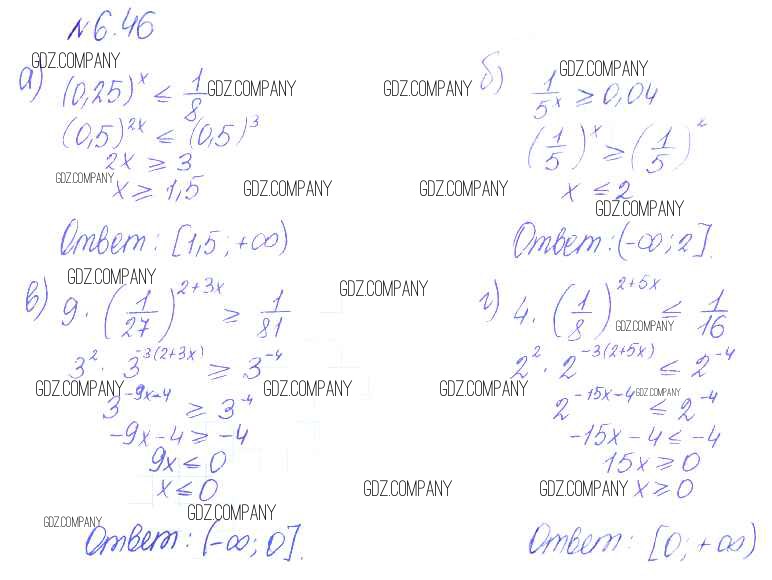 №6.46
GDZ.COMPANY
а) (0,25)^x ≤ 1/8
GDZ.COMPANY
(0,5)^2x ≤ (0,5)^3
2x ≥ 3
GDZ.COMPANY
x ≥ 1,5
GDZ.COMPANY
Ответ: [1,5; +∞)
GDZ.COMPANY
GDZ.COMPANY
б) 1/5^x ≥ 0,04
GDZ.COMPANY
(1/5)^x ≥ (1/5)^2
x ≤ 2
GDZ.COMPANY
GDZ.COMPANY
Ответ: (-∞; 2].
GDZ.COMPANY
в) 9 · (1/27)^2+3x ≥ 1/81
GDZ.COMPANY
3^2 · 3^-3(2+3x) ≥ 3^-4
GDZ.COMPANY
GDZ.COMPANY
3^-9x-4 ≥ 3^-4
-9x-4 ≥ -4
9x ≤ 0
x ≤ 0
GDZ.COMPANY
GDZ.COMPANY
GDZ.COMPANY
Ответ: (-∞; 0].
г) 4 · (1/8)^2+5x ≤ 1/16
GDZ.COMPANY
2^2 · 2^-3(2+5x) ≤ 2^-4
GDZ.COMPANY
GDZ.COMPANY
2^-15x-4 ≤ 2^-4
-15x-4 ≤ -4
15x ≥ 0
GDZ.COMPANY
x ≥ 0
Ответ: [0; +∞)